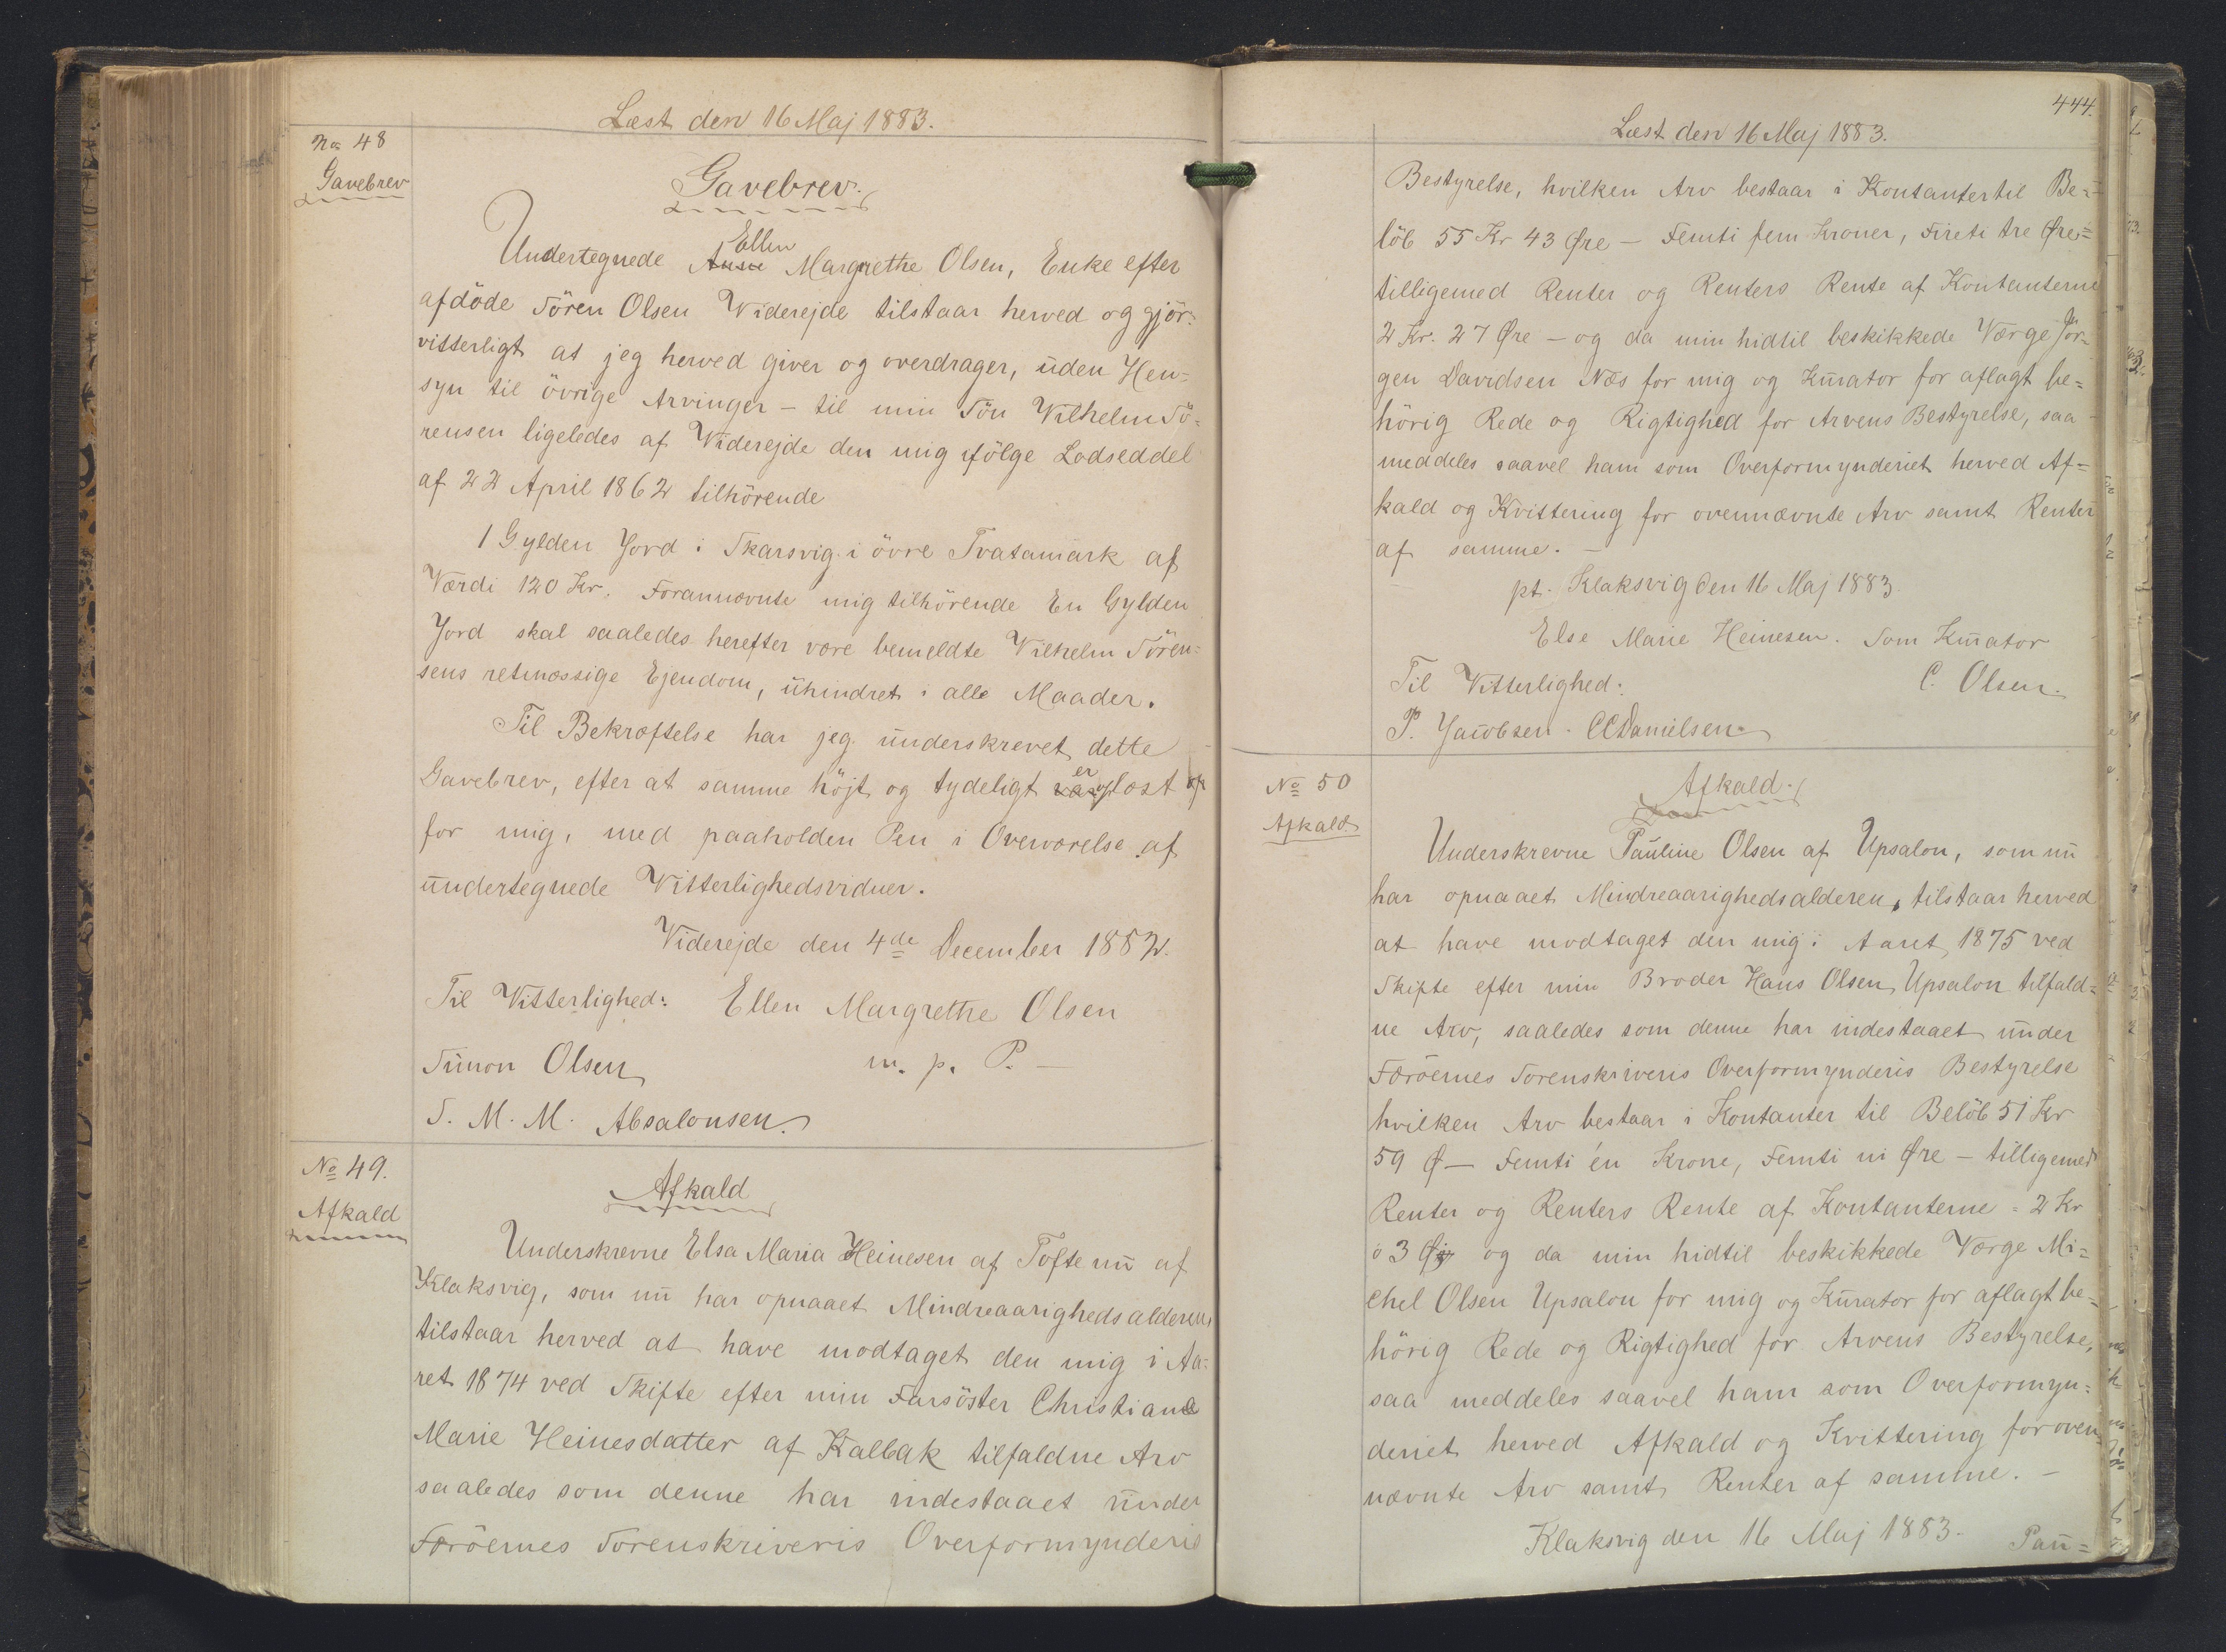 Læst den 16 Maj 1883.
No 48
Gavebrev
Gavebrev.
Undertegnede Anne Ellen Margrethe Olsen, Enke efter
afdöde Sören Olsen Viderejde tilstaar herved og gjör
vitterligt at jeg herved giver og overdrager, uden Hen=
syn til övrige Arvinger - til min Sön Vilhelm Sö=
rensen ligeledes af Viderejde den mig ifölge Lodseddel
af 22 April 1862 tilhörende
1 Gylden Jord i Skarsvig i övre Tvatamark af
Værdi 120 Kr. Forannævnte mig tilhörende En Gylden
Jord skal saaledes herefter være bemeldte Vilhelm Sören=
sens retmæssige Ejendom, uhindret i alle Maader.
Til Bekræftelse har jeg underskrevet dette
Gavebrev, efter at samme höjt og tydeligt er oplæst
for mig, med paaholden Pen i Overværelse af
undertegnede Vitterlighedsvidner.
Viderejde den 4de December 1882.
Til Vitterlighed: Ellen Margrethe Olsen
Simon Olsen m. p. P. -
S. M. M. Absalonsen.
No 49.
Afkald
Afkald
Underskrevne Elsa Maria Heinesen af Tofte nu af
Klaksvig, som nu har opnaaet Mindreaarighedsalderen,
tilstaar herved at have modtaget den mig i Aa=
ret 1874 ved Skifte efter min Farsöster Christiane
Marie Heinesdatter af Kalbak tilfaldne Arv
saaledes som denne har indestaaet under
Færöernes Sorenskriveris Overformynderis
444.
Læst den 16 Maj 1883.
Bestyrelse, hvilken Arv bestaar i Kontanter til Be=
löb 55 Kr 43 Øre - Femti fem Kroner, Fireti tre Øre=
tilligemed Renter og Renters Rente af Kontanterne
2 Kr. 27 Øre - og da min hidtil beskikkede Værge Jör=
gen Davidsen Næs for mig og Kurator for aflagt be=
hörig Rede og Rigtighed for Arvens Bestyrelse, saa
meddeles saavel ham som Overformynderiet herved Af=
kald og Kvittering for ovennævnte Arv samt Renter
af samme. -
pt. Klaksvig den 16 Maj 1883
Else Marie Heinesen. Som Kurator
Til Vitterlighed: C. Olsen.
P. Jacobsen. CCDanielsen.
No 50
Afkald
Afkald.
Underskrevne Pauline Olsen af Upsalon, som nu
har opnaaet Mindreaarighedsalderen, tilstaar herved
at have modtaget den mig i Aaret 1875 ved
Skifte efter min Broder Hans Olsen Upsalon tilfald=
ne Arv, saaledes som denne har indestaaet under
Færöernes Sorenskriveris Overformynderis Bestyrelse
hvilken Arv bestaar i Kontanter til Belöb 51 Kr
59 Ø - Femti én Krone, Femti ni Øre - tilligemed
Renter og Renters Rente af Kontanterne = 2 Kr
03 Ø og da min hidtil beskikkede Værge Mi=
chel Olsen Upsalon for mig og Kurator for aflagt be=
hörig Rede og Rigtighed for Arvens Bestyrelse,
saa meddeles saavel ham som Overformyn=
deriet herved Afkald og Kvittering for oven=
nævnte Arv samt Renter af samme. -
Klaksvig den 16 Maj 1883.
Pau=